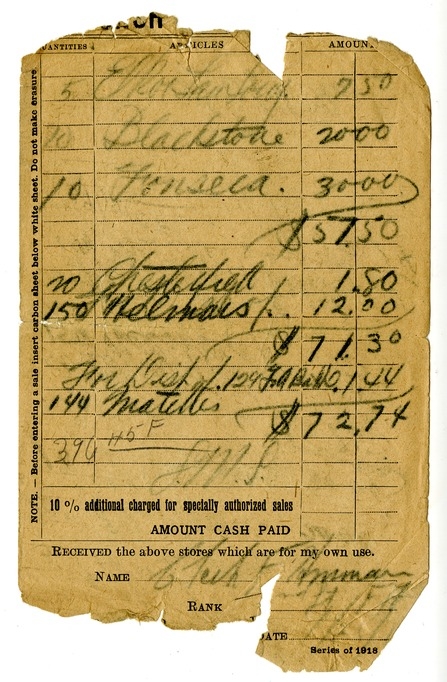 QUANTITIES ARTICLES AMOUNT
5 7 50
10 Blackstone 20 00
10 Fonseca. 30 00
$57.50
20 Chesterfield 1.80
150 12.00
$71.30
For Dist. 1.44
144 Matches
$72,74
396 45 F
10 % additional charged for specially authorized sales
AMOUNT CASH PAID
RECEIVED the above stores which are for my own use.
NAME Amman
RANK
DATE
Series of 1918
NOTE. — Before entering a sale insert carbon sheet below white sheet. Do not make erasure